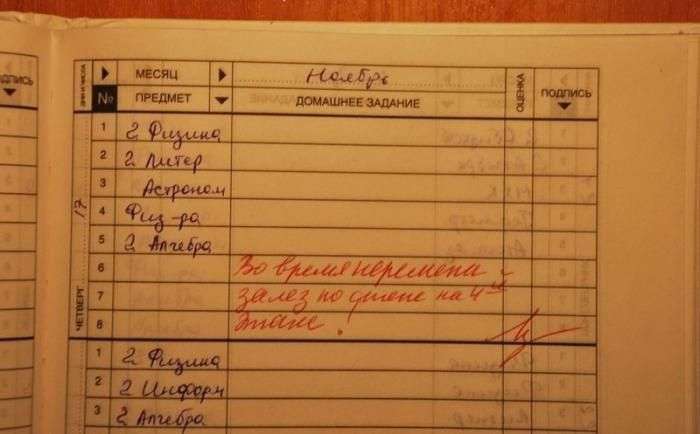 ДНИ И ЧИСЛА МЕСЯЦ Ноябрь ОЦЕНКА ПОДПИСЬ
ПОДПИСЬ № ПРЕДМЕТ ДОМАШНЕЕ ЗАДАНИЕ
ЧЕТВЕРГ 17
1 2 Физика
2 2 Литер
3 Астроном
4 Физ-ра
5 2 Алгебра
6 Во время перемены
7 залез по стене на 4ый
8 этаж!
1 2 Физика
2 2 Информ
3 2 Алгебра